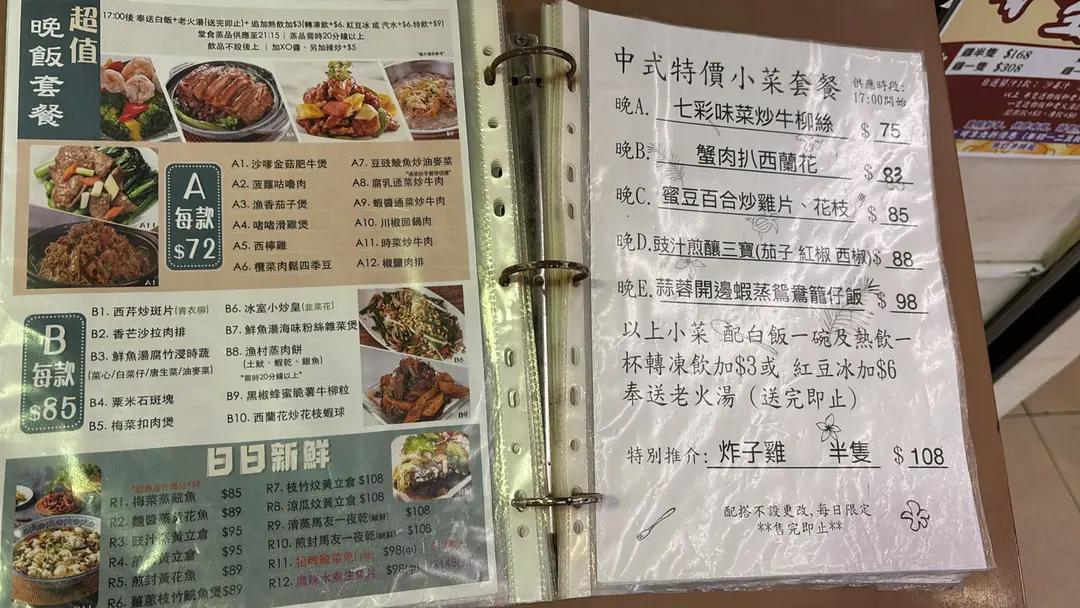 超值
晚飯套餐
17:00後 奉送白飯+老火湯(送完即止)+ 追加熱飲加$3(轉凍飲+$6. 紅豆冰 或 汽水+$6.特飲+$9)
堂食蒸品供應至21:15 | 蒸品需時20分鐘以上
飲品不設後上 | 加XO醬、另加辣炒+$5
A
每款
$72
A1. 沙嗲金菇肥牛煲
A2. 菠蘿咕嚕肉
A3. 漁香茄子煲
A4. 啫啫滑雞煲
A5. 西檸雞
A6. 欖菜肉鬆四季豆
A7. 豆豉鯪魚炒油麥菜
A8. 腐乳通菜炒牛肉
A9. 蝦醬通菜炒牛肉
A10. 川椒回鍋肉
A11. 時菜炒牛肉
A12. 椒鹽肉排
A11
B
每款
$85
B1. 西芹炒斑片(青衣柳)
B2. 香芒沙拉肉排
B3. 鮮魚湯腐竹浸時蔬
(菜心/白菜仔/唐生菜/油麥菜)
B4. 粟米石斑塊
B5. 梅菜扣肉煲
B6. 冰室小炒皇(韭菜花)
B7. 鮮魚湯海味粉絲雜菜煲
B8. 漁村蒸肉餅
(土魷、蝦乾、銀魚)
*需時20分鐘以上*
B9. 黑椒蜂蜜脆薯牛柳粒
B10. 西蘭花炒花枝蝦球
B6
B9
日日新鮮
R1. 梅菜蒸鯇魚 $85
R2. 麵醬蒸黃花魚 $89
R3. 豉汁蒸黃立倉 $95
R4. 煎封黃立倉 $95
R5. 煎封黃花魚 $89
R6. 薑蔥枝竹鯇魚煲 $89
R7. 枝竹炆黃立倉 $108
R8. 涼瓜炆黃立倉 $108
R9. 清蒸馬友一夜乾(鹹鮮) $108
R10. 煎封馬友一夜乾(鹹鮮) $108
R11. 招牌酸菜魚(小辣) $98(中)
R12. 麻辣水煮生魚片 $98(中)
中式特價小菜套餐
供應時段:
17:00開始
晚A. 七彩味菜炒牛柳絲 $ 75
晚B. 蟹肉扒西蘭花 $ 83
晚C. 蜜豆百合炒雞片、花枝 $ 85
晚D. 豉汁煎釀三寶(茄子 紅椒 西椒) $ 88
晚E. 蒜蓉開邊蝦蒸鴛鴦籠仔飯 $ 98
以上小菜 配白飯一碗及熱飲一
杯轉凍飲加$3或 紅豆冰加$6
奉送老火湯 (送完即止)
特別推介: 炸子雞 半隻 $ 108
配搭不設更改,每日限定
**售完即止**
雞半隻 $168
雞一隻 $308